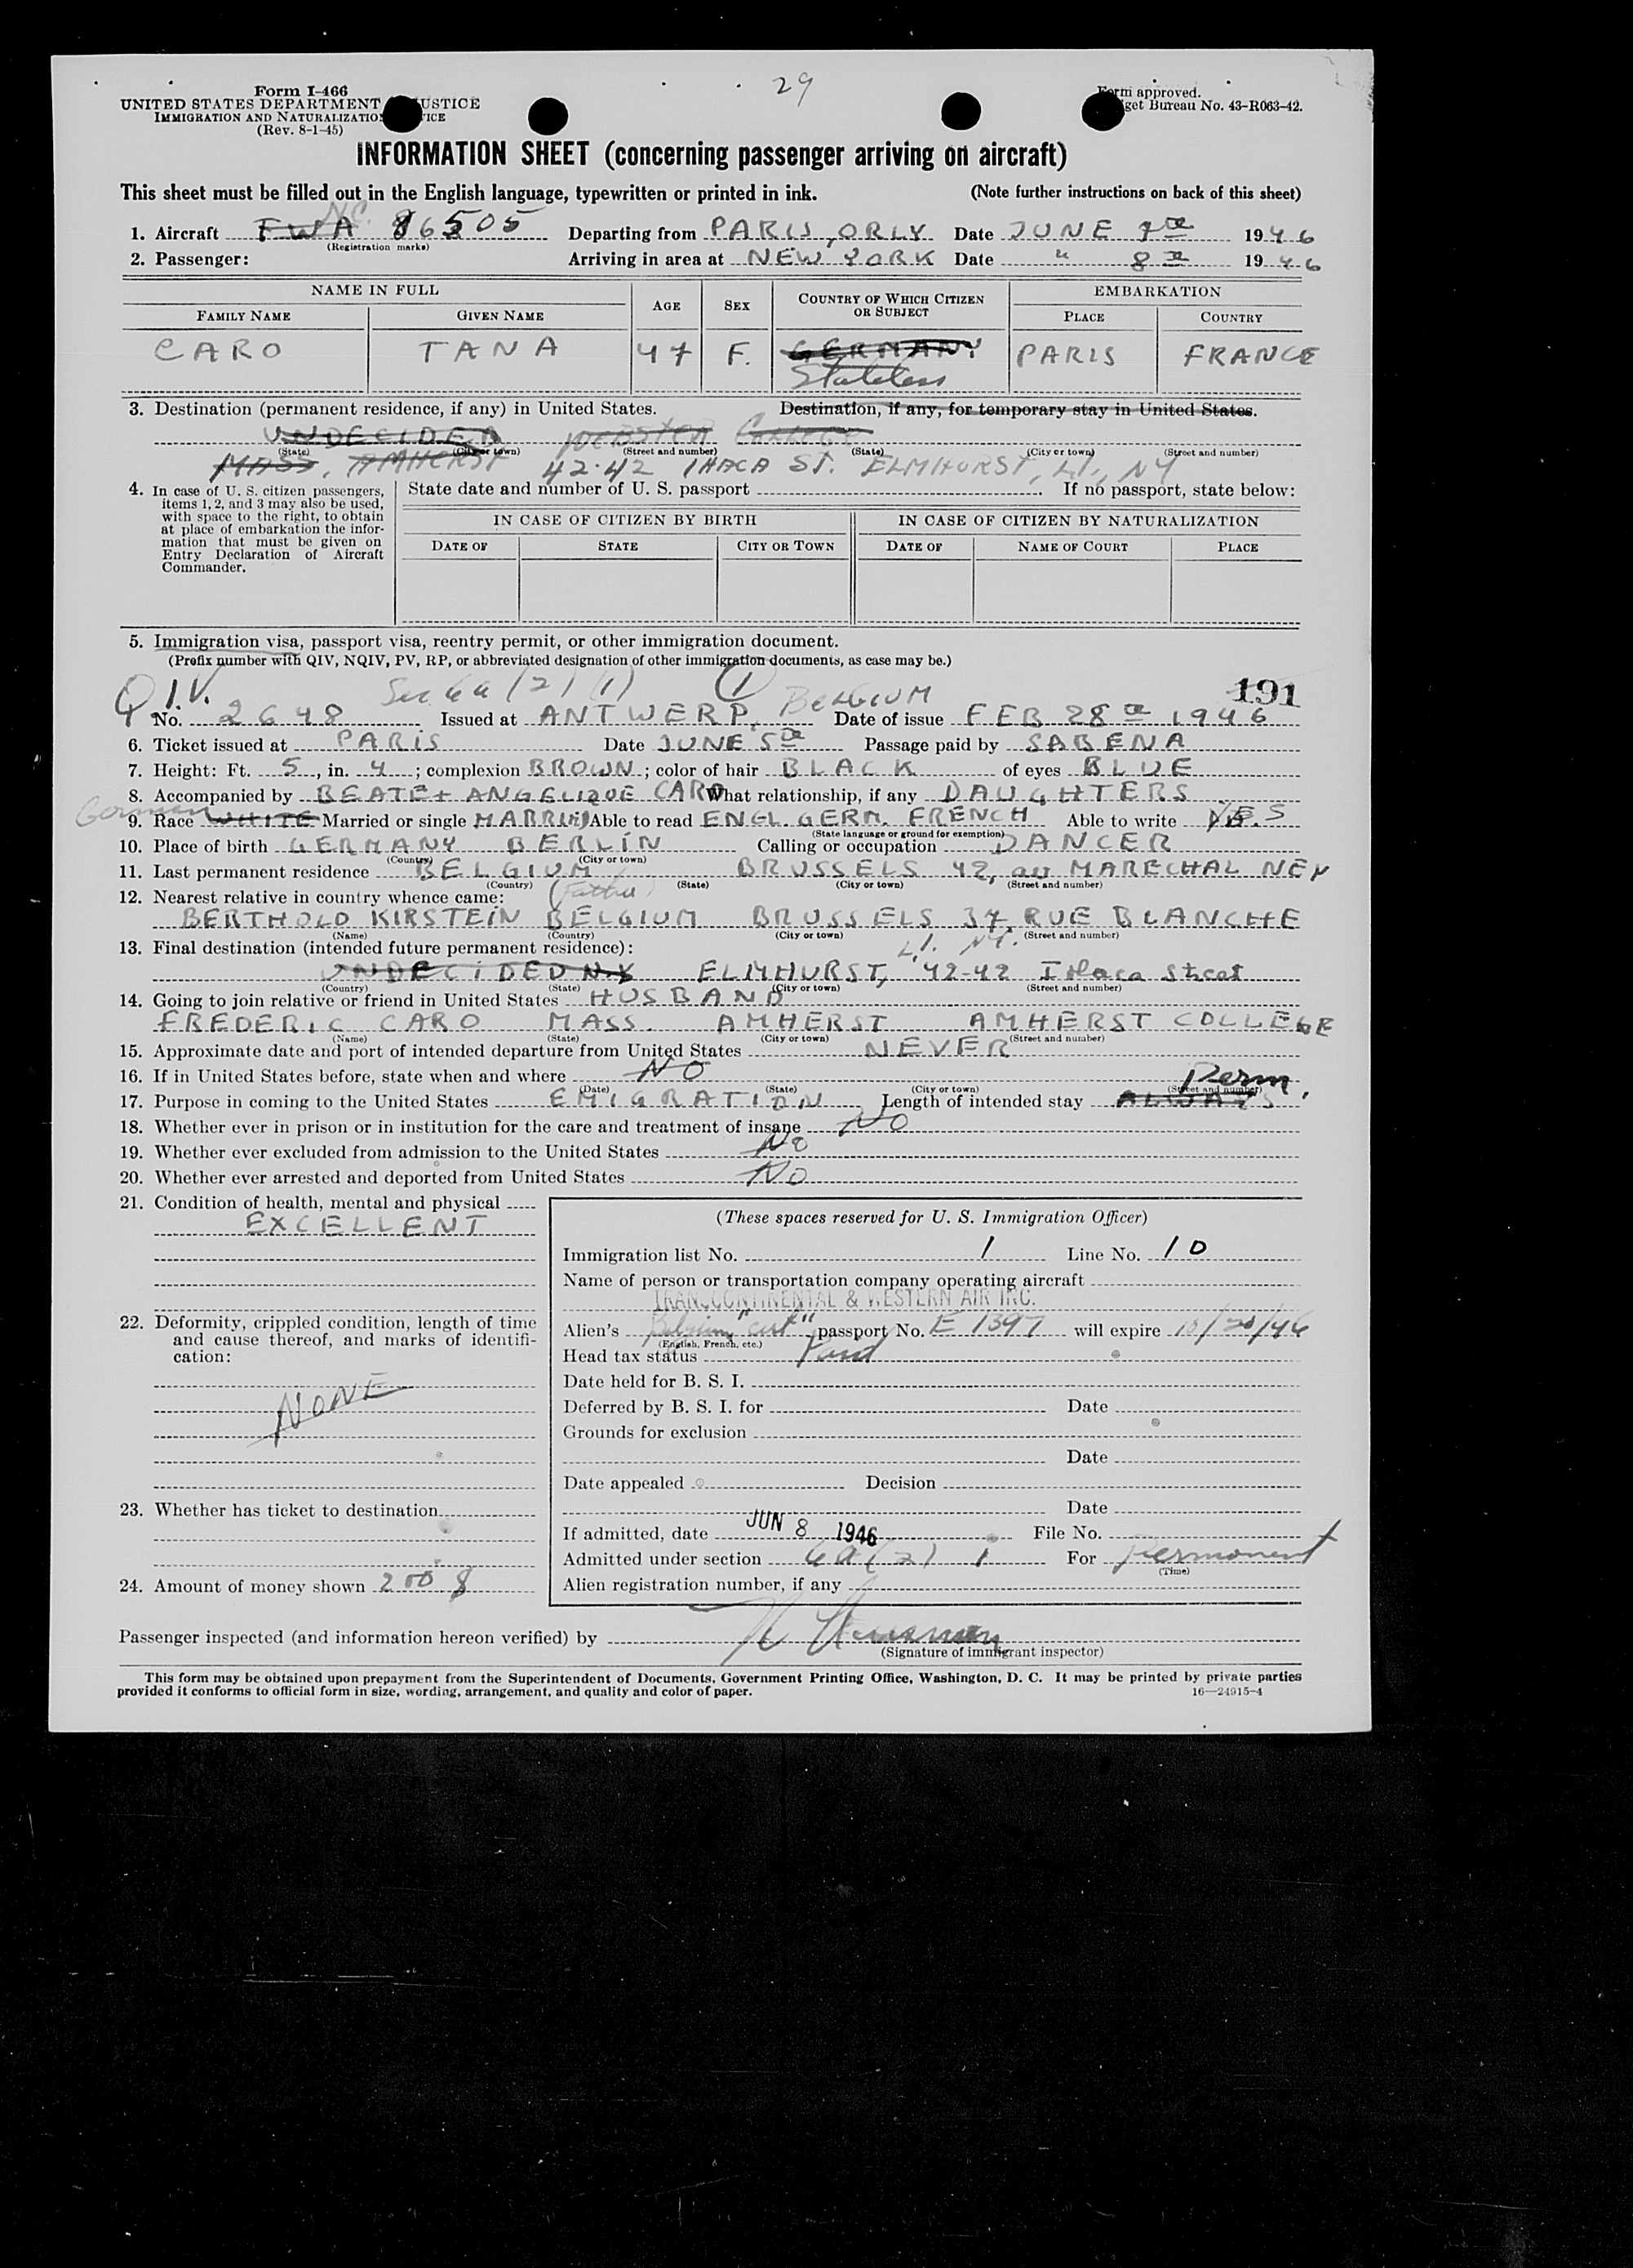 29
Form I-466
UNITED STATES DEPARTMENT JUSTICE
IMMIGRATION AND NATURALIZATION
(Rev. 8-1-45)
Form approved.
Budget Bureau No. 43-R063-42.
INFORMATION SHEET (concerning passenger arriving on aircraft)
This sheet must be filled out in the English language, typewritten or printed in ink. (Note further instructions on back of this sheet)
NC.
1. Aircraft TWA 86505 Departing from PARIS, ORLY Date JUNE 7 1946
(Registration marks)
2. Passenger: Arriving in area at NEW YORK Date " 8 1946
NAME IN FULL AGE SEX COUNTRY OF WHICH CITIZEN OR SUBJECT EMBARKATION
FAMILY NAME GIVEN NAME PLACE COUNTRY
CARO TANA 47 F. GERMANY PARIS FRANCE
Stateless
3. Destination (permanent residence, if any) in United States. Destination, if any, for temporary stay in United States.
UNDECIDED WEBSTER COLLEGE
(State) (City or town) (Street and number) (State) (City or town) (Street and number)
MASS, AMHERST 42-42 IHACA ST. ELMHURST, LI., NY
4. In case of U. S. citizen passengers, items 1, 2, and 3 may also be used, with space to the right, to obtain at place of embarkation the information that must be given on Entry Declaration of Aircraft Commander.
State date and number of U. S. passport If no passport, state below:
IN CASE OF CITIZEN BY BIRTH IN CASE OF CITIZEN BY NATURALIZATION
DATE OF STATE CITY OR TOWN DATE OF NAME OF COURT PLACE
5. Immigration visa, passport visa, reentry permit, or other immigration document.
(Prefix number with QIV, NQIV, PV, RP, or abbreviated designation of other immigration documents, as case may be.)
Q.I.V. Sec 6a (2) (1) (1) BELGIUM 191
No. 2648 Issued at ANTWERP, Date of issue FEB 28 1946
6. Ticket issued at PARIS Date JUNE 5 Passage paid by SABENA
7. Height: Ft. 5, in. 4; complexion BROWN; color of hair BLACK of eyes BLUE
8. Accompanied by BEATE + ANGELIQUE CARO What relationship, if any DAUGHTERS
German
9. Race WHITE Married or single MARRIED Able to read ENGL. GERM. FRENCH Able to write YES
(State language or ground for exemption)
10. Place of birth GERMANY BERLIN Calling or occupation DANCER
(Country) (City or town)
11. Last permanent residence BELGIUM BRUSSELS 42, av MARECHAL NEY
(Country) (State) (City or town) (Street and number)
12. Nearest relative in country whence came: (Father)
BERTHOLD KIRSTEIN BELGIUM BRUSSELS 37 RUE BLANCHE
(Name) (Country) (City or town) (Street and number)
13. Final destination (intended future permanent residence): L.I. NY.
UNDECIDED N.Y ELMHURST, 42-42 Ithaca Street
(Country) (State) (City or town) (Street and number)
14. Going to join relative or friend in United States HUSBAND
FREDERIC CARO MASS. AMHERST AMHERST COLLEGE
(Name) (State) (City or town) (Street and number)
15. Approximate date and port of intended departure from United States NEVER
16. If in United States before, state when and where NO
(Date) (State) (City or town) (Street and number)
Perm.
17. Purpose in coming to the United States EMIGRATION Length of intended stay ALWAYS
18. Whether ever in prison or in institution for the care and treatment of insane NO
19. Whether ever excluded from admission to the United States No
20. Whether ever arrested and deported from United States NO
21. Condition of health, mental and physical
EXCELLENT
22. Deformity, crippled condition, length of time and cause thereof, and marks of identification:
NONE
23. Whether has ticket to destination
24. Amount of money shown 200 $
(These spaces reserved for U. S. Immigration Officer)
Immigration list No. 1 Line No. 10
Name of person or transportation company operating aircraft
TRANSCONTINENTAL & WESTERN AIR INC.
Alien's Belgium "cert" passport No. E 1397 will expire 10/20/46
(English, French, etc.)
Head tax status Paid
Date held for B. S. I.
Deferred by B. S. I. for Date
Grounds for exclusion
Date
Date appealed Decision
Date
If admitted, date JUN 8 1946 File No.
Admitted under section 6a(2) 1 For Permanent
(Time)
Alien registration number, if any
Passenger inspected (and information hereon verified) by
(Signature of immigrant inspector)
This form may be obtained upon prepayment from the Superintendent of Documents, Government Printing Office, Washington, D. C. It may be printed by private parties
provided it conforms to official form in size, wording, arrangement, and quality and color of paper. 16—24915-4